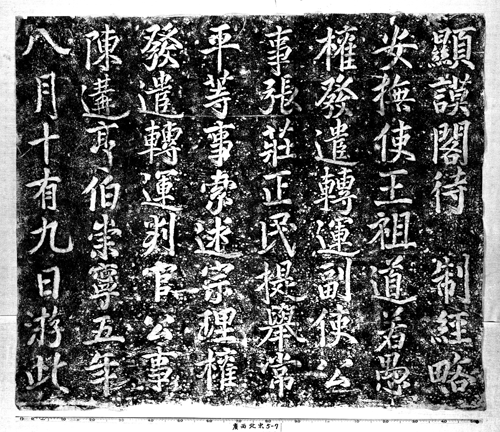 顯謨閣待 制經略
安撫使王祖道若愚
權發遣轉運副使公
事張莊正民提舉常
平等事索述宗理權
發遣轉運判官公事
陳遘亨伯崇寧五年
八月十有九日游此
5-7